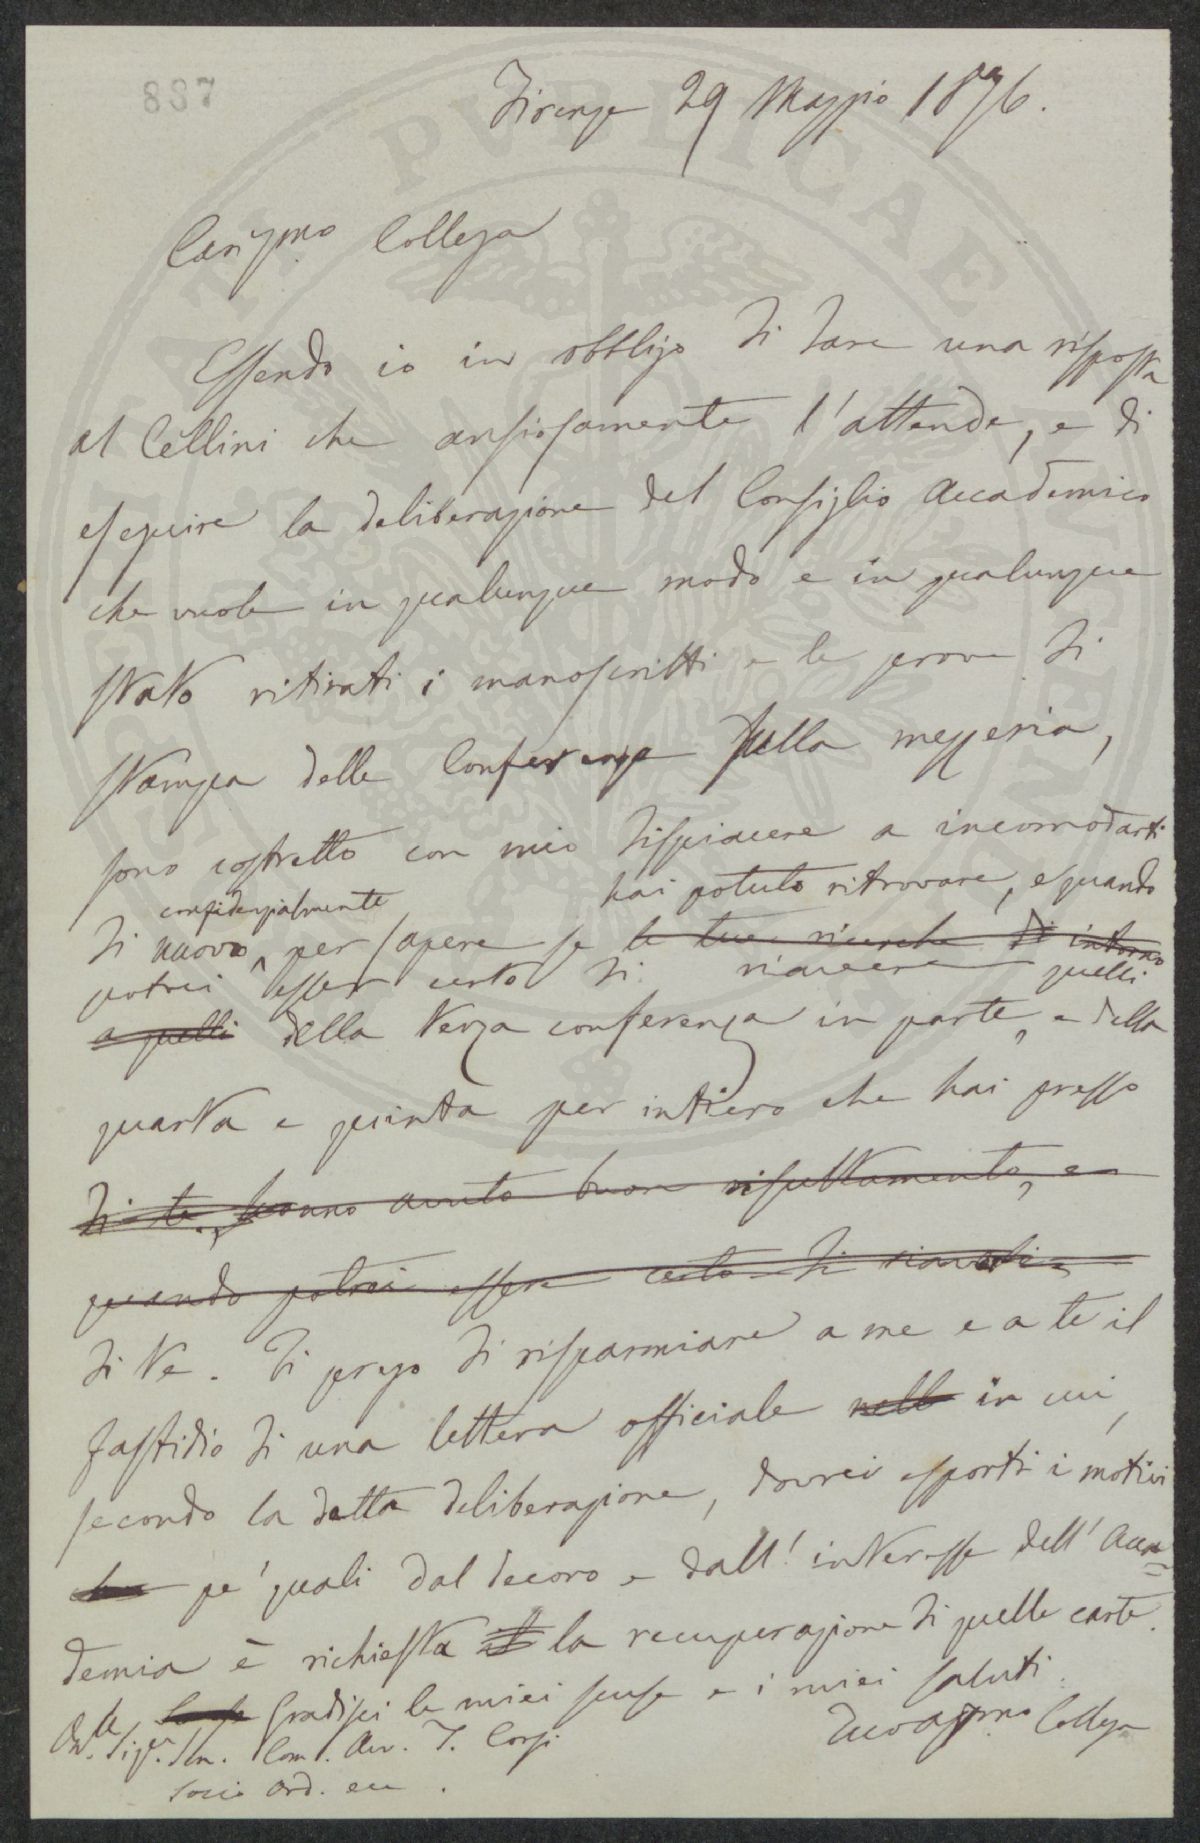 837
Firenze 29 Maggio 1876.
Cariss.mo Collega
Essendo io in obbligo di dare una risposta
al Cellini che ansiosamente l'attende, e di
eseguire la deliberazione del Consiglio Accademico
che vuole in qualunque modo e in qualunque
stato ritirati i manoscritti e le prove di
stampa delle Conferenze sulla mezzeria,
sono costretto con mio dispiacere a incomodarti
confidenzialmente hai potuto ritrovare, e quando
di nuovo, per sapere se le tue ricerche di intorno
potrei esser certo di riavere quelli
a quelli della terza conferenza in parte, e della
quarta e quinta per intiero che hai presso
di te, hanno avuto buon risultamento, e
quando potrei essere certo di riaverli
di te. Ti prego di risparmiare a me e a te il
fastidio di una lettera officiale nella in cui,
secondo la detta deliberazione, dovrei esporti i motivi
che pe' quali dal decoro e dall' interesse dell' Acca=
demia è richiesta la recuperazione di quelle carte.
Gradisci le mie scuse e i miei saluti.
Devotissmo Collega
On.le Sigr. Sen. Com. Avv. T. Corsi
Socio Ord. ecc.